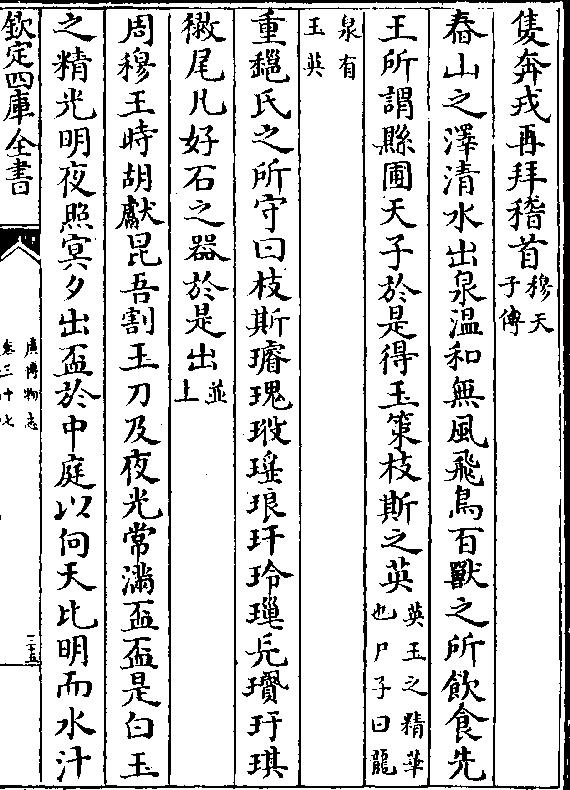 隻奔戎再拜稽首穆天子傳
春山之澤清水出泉溫和無風飛鳥百獸之所飲食先
王所謂縣圃天子於是得玉䇿枝斯之英英玉之精華也尸子曰龍
泉有玉英
重𨤲氏之所守曰枝斯璿瑰㻎瑤琅玕玲㻹㒫瓄玗琪
𢕄尾凡好石之器於是出並上
周穆王時胡獻昆吾割玉刀及夜光常滿盃盃是白玉
之精光明夜照冥夕出盃於中庭以向天比明而水汁
欽定四庫全書
廣博物志
卷三十七
三十五